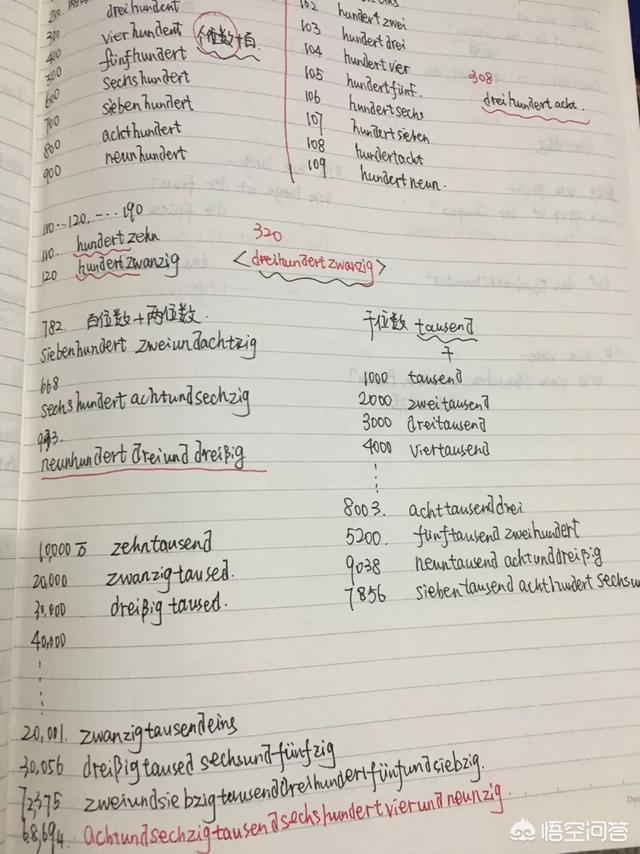 300 dreihundert
400 vierhundert 个位数+百.
500 fünfhundert
600 sechshundert
700 siebenhundert
800 achthundert
900 neunhundert
102 hundert zwei
103 hundert drei
104 hundert vier
105 hundert fünf.
106 hundert sechs
107 hundert sieben
108 hundertacht
109 hundert neun.
308
dreihundert acht.
110...120,...190
110. hundertzehn
120 hundertzwanzig
320
<dreihundertzwanzig>
782 百位数+两位数.
siebenhundert zweiundachtzig
668
sechshundert achtundsechzig
933.
neunhundert dreiund dreißig
千位数 tausend
千
1000 tausend
2000 zweitausend
3000 dreitausend
4000 viertausend
8003. achttausenddrei
5200 fünftausend zweihundert
9038 neuntausend achtunddreißig
7856 siebentausend achthundert sechsu
10,000 万 zehntausend
20,000 zwanzigtaused.
30,000 dreißig taused.
40,000
20,001. zwanzigtausendeins
30,056 dreißigtaused sechsundfünfzig
72,375 zweiundsiebzigtausenddreihundertfünfundsiebzig.
68,694. achtundsechzigtausendsechshundertvierundneunzig.
悟空问答